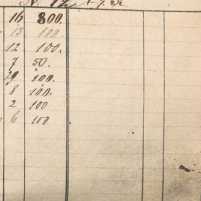 16 800.
13 100.
12 100.
7 50.
19 100.
8 100.
2 100
6 100